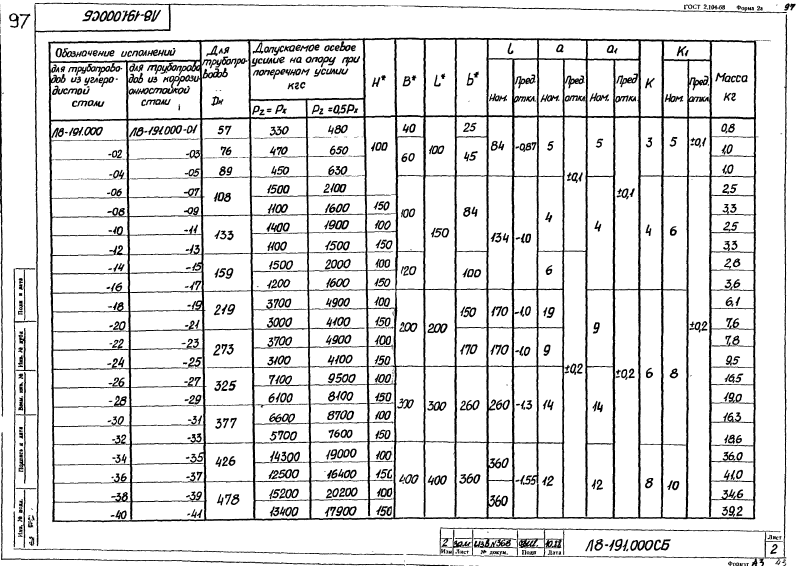 97
Л8-191.000СБ
ГОСТ 2.104-68 Форма 2а
97
Обозначение исполнений | Для трубопроводов Dн | Допускаемое осевое усилие на опору при поперечном усилии кгс | H* | B* | L* | b* | l | a | a₁ | K | K₁ | Масса кг
для трубопроводов из углеродистой стали | для трубопроводов из коррозионностойкой стали | Pz = Px | Pz =0,5Px | Ном. | Пред. откл. | Ном. | Пред. откл. | Ном. | Пред. откл. | Ном. | Пред. откл.
Л8-191.000 | Л8-191.000-01 | 57 | 330 | 480 | 100 | 40 | 100 | 25 | 84 | -0,87 | 5 | ±0,1 | 5 | ±0,1 | 3 | 5 | ±0,1 | 0,8
-02 | -03 | 76 | 470 | 650 | 60 | 45 | 1,0
-04 | -05 | 89 | 450 | 630 | 1,0
-06 | -07 | 108 | 1500 | 2100 | 100 | 150 | 84 | 134 | -1,0 | 4 | 4 | 4 | 6 | ±0,2 | 2,5
-08 | -09 | 1100 | 1600 | 150 | 3,3
-10 | -11 | 133 | 1400 | 1900 | 100 | 2,5
-12 | -13 | 1100 | 1500 | 150 | 3,3
-14 | -15 | 159 | 1500 | 2000 | 100 | 120 | 100 | 6 | 2,8
-16 | -17 | 1200 | 1600 | 150 | 3,6
-18 | -19 | 219 | 3700 | 4900 | 100 | 200 | 200 | 150 | 170 | -1,0 | 19 | ±0,2 | 9 | ±0,2 | 6 | 8 | 6,1
-20 | -21 | 3000 | 4100 | 150 | 7,6
-22 | -23 | 273 | 3700 | 4900 | 100 | 170 | 170 | -1,0 | 9 | 7,8
-24 | -25 | 3100 | 4100 | 150 | 9,5
-26 | -27 | 325 | 7100 | 9500 | 100 | 300 | 300 | 260 | 260 | -1,3 | 14 | 14 | 16,5
-28 | -29 | 6100 | 8100 | 150 | 19,0
-30 | -31 | 377 | 6600 | 8700 | 100 | 16,3
-32 | -33 | 5700 | 7600 | 150 | 18,6
-34 | -35 | 426 | 14300 | 19000 | 100 | 400 | 400 | 360 | 360 | -1,55 | 12 | 12 | 8 | 10 | 36,0
-36 | -37 | 12500 | 16400 | 150 | 41,0
-38 | -39 | 478 | 15200 | 20200 | 100 | 360 | 34,6
-40 | -41 | 13400 | 17900 | 150 | 39,2
Подп и дата
Инв. № дубл.
Взам. инв. №
Подпись и дата
Инв. № подл.
2 зам изв №368 10.12
Изм Лист № докум. Подп Дата
Л8-191.000СБ
Лист
2
Формат А3